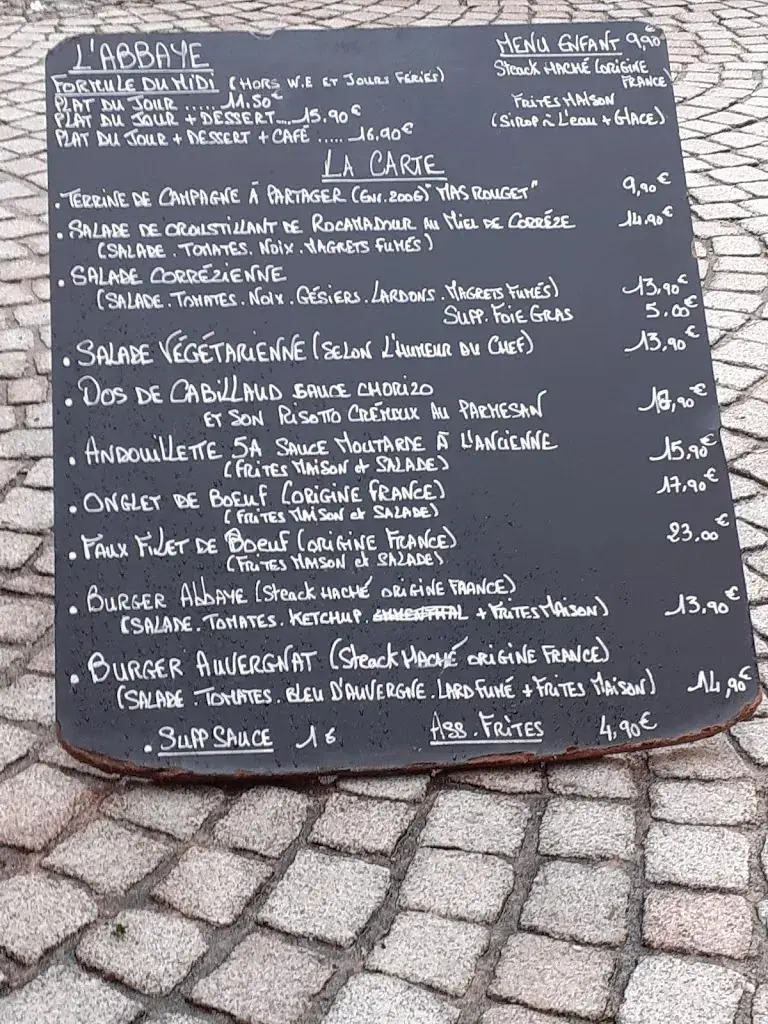 L'ABBAYE
FORMULE DU MIDI (HORS W.E ET JOURS FÉRIÉS)
PLAT DU JOUR ..... 11.50€
PLAT DU JOUR + DESSERT.... 15.90€
PLAT DU JOUR + DESSERT + CAFÉ ..... 16,90€
MENU ENFANT 9,90
STEACK HACHÉ (ORIGINE
FRANCE
FRITES MAISON
(SIROP à L'EAU + GLACE)
LA CARTE
. TERRINE DE CAMPAGNE À PARTAGER (ENV. 200G) "MAS ROUGET" 9,90€
. SALADE DE CROUSTILLANT DE ROCAMADOUR AU MIEL DE CORRÈZE 14,90€
(SALADE . TOMATES. NOIX . MAGRETS FUMÉS)
. SALADE CORRÉZIENNE
(SALADE . TOMATES. NOIX . GÉSIERS. LARDONS . MAGRETS FUMÉS) 13,90€
SUPP. FOIE GRAS 5.00€
. SALADE VÉGÉTARIENNE (SELON L'HUMEUR DU CHEF) 13,90€
. DOS DE CABILLAUD SAUCE CHORIZO
ET SON RISOTTO CRÉMEUX AU PARMESAN 18,90€
. ANDOUILLETTE 5A SAUCE MOUTARDE À L'ANCIENNE 15,90€
(FRITES MAISON et SALADE)
. ONGLET DE BOEUF (ORIGINE FRANCE) 17,90€
(FRITES MAISON et SALADE)
. FAUX FILET DE BOEUF (ORIGINE FRANCE) 23.00€
(FRITES MAISON et SALADE)
. BURGER ABBAYE (STEACK HACHÉ ORIGINE FRANCE)
(SALADE . TOMATES. KETCHUP. EMMENTHAL + FRITES MAISON) 13,90€
. BURGER AUVERGNAT (STEACK HACHÉ ORIGINE FRANCE)
(SALADE . TOMATES. BLEU D'AUVERGNE. LARD FUMÉ + FRITES MAISON) 14,90€
. SUPP SAUCE 1€ ASS. FRITES 4,90€